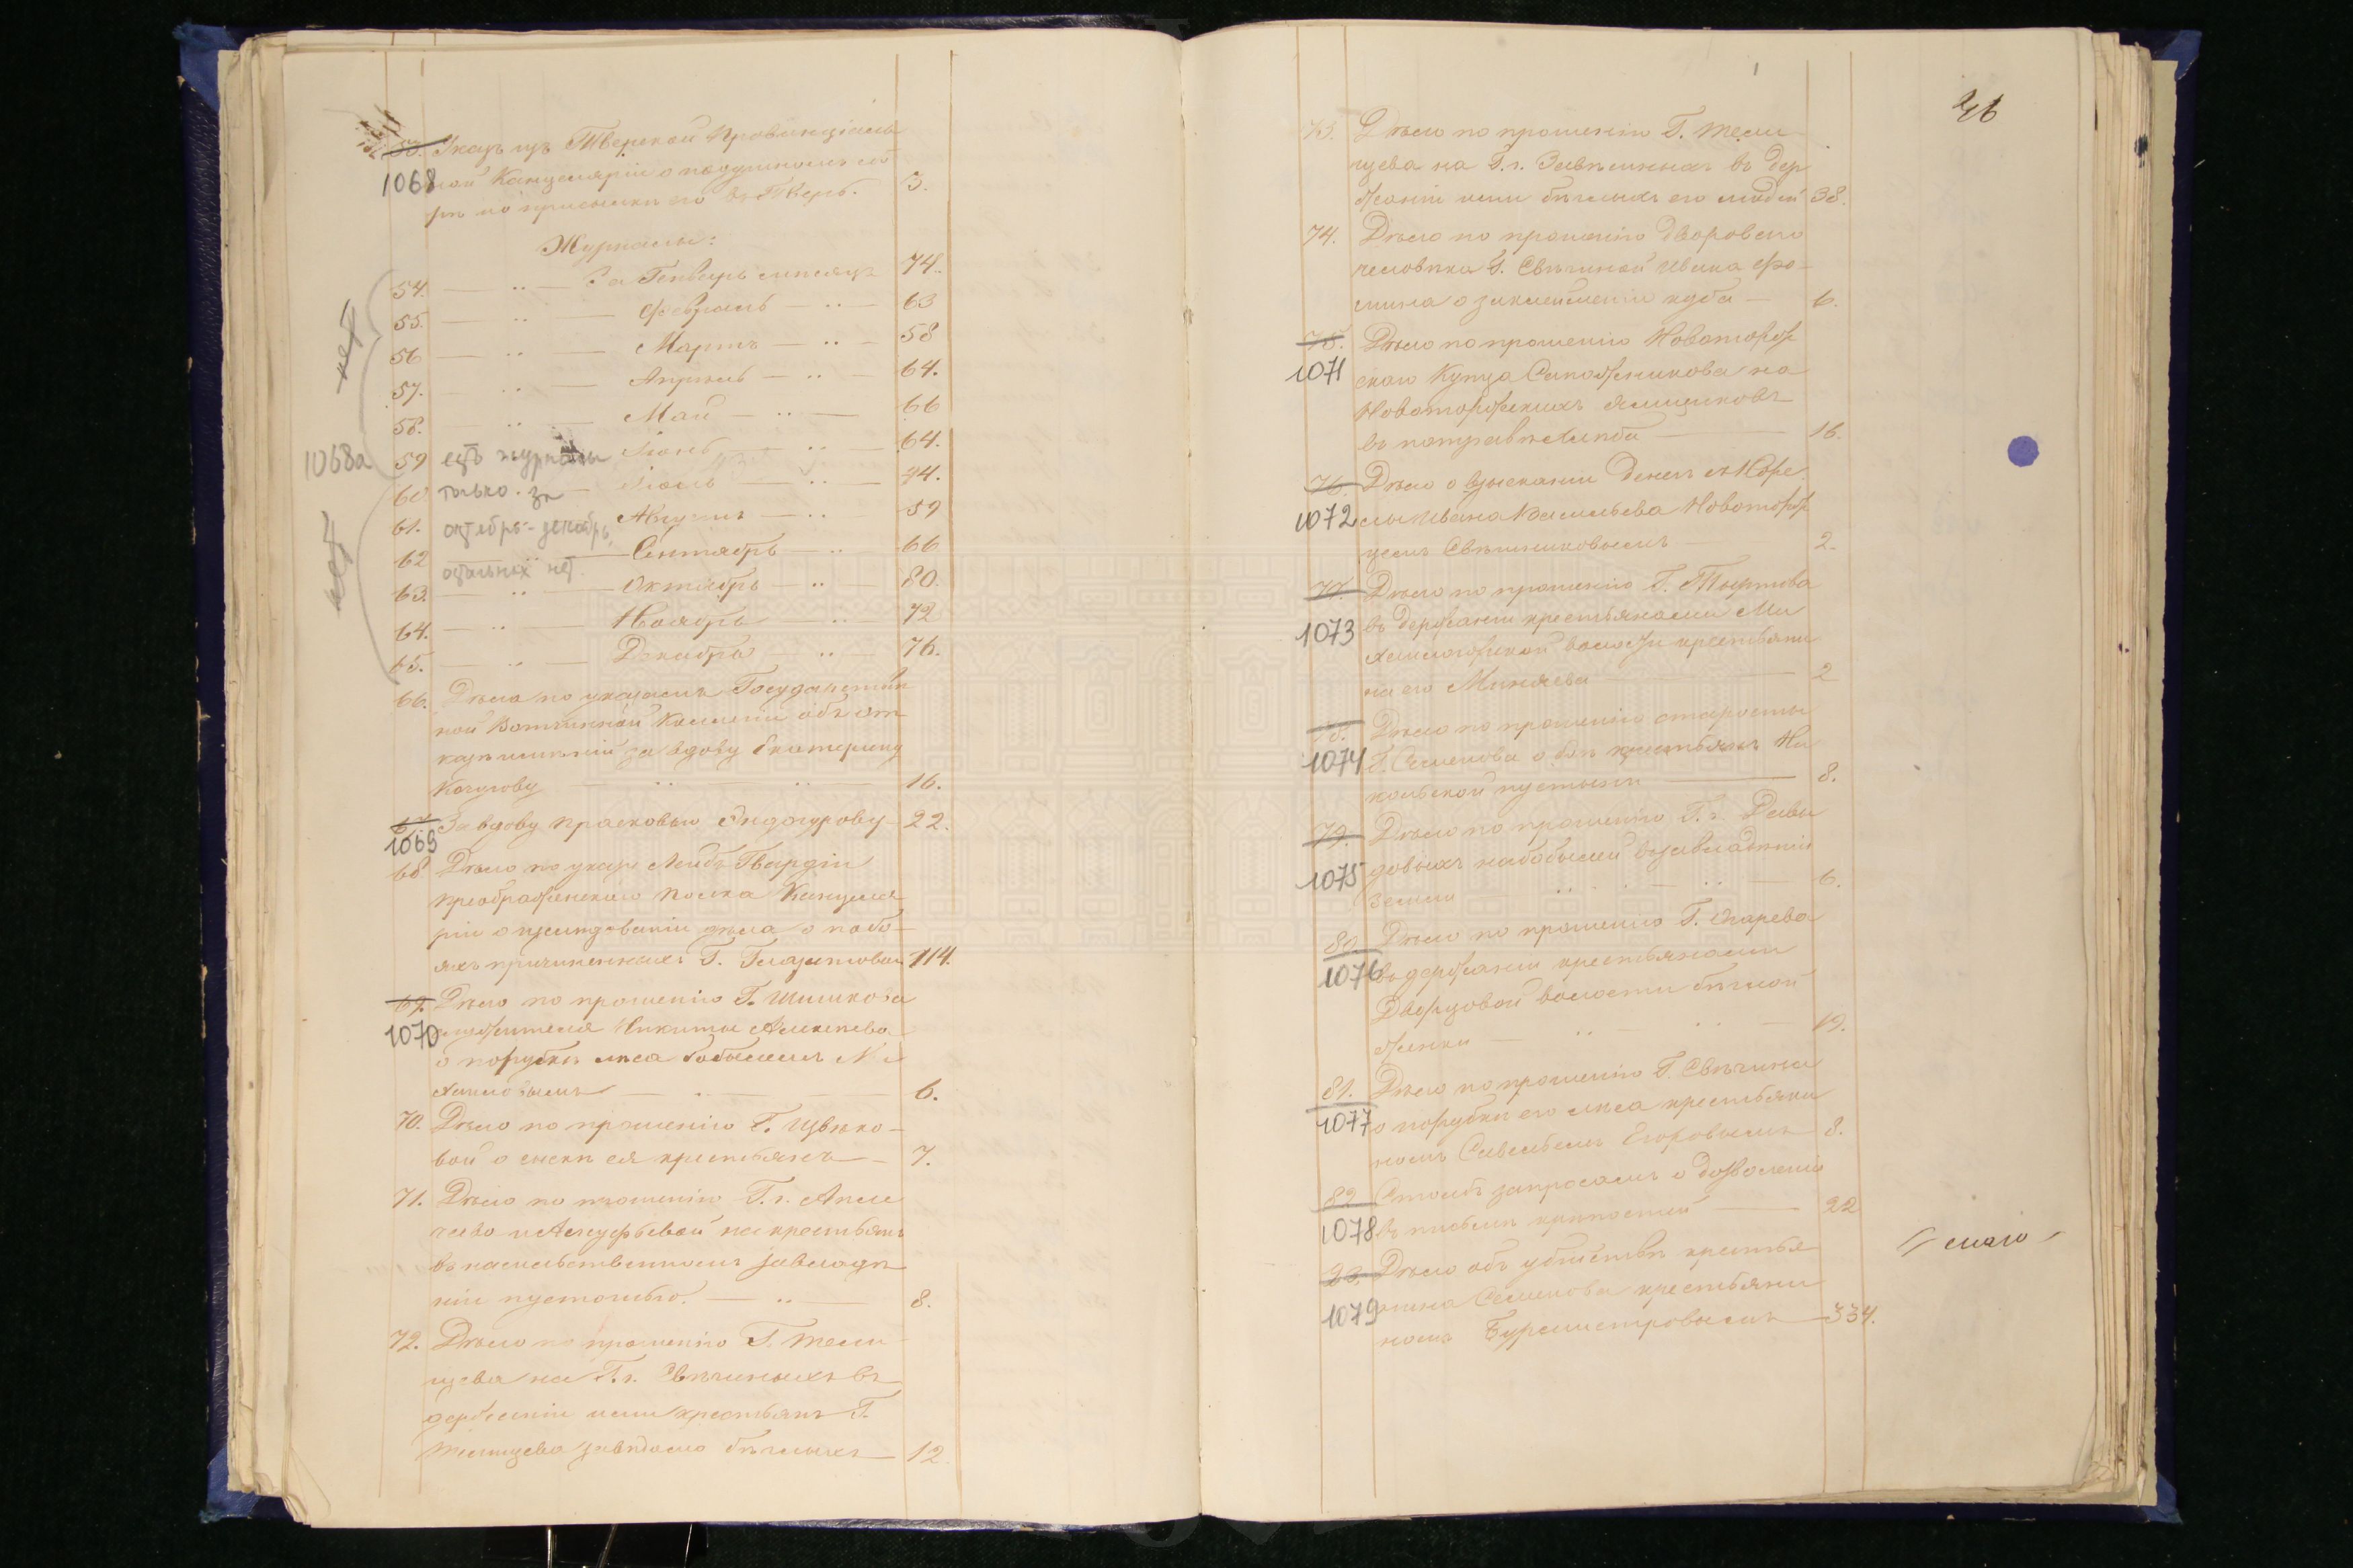 53. Указъ изъ Тверской Провинціаль
1068 ной Канцеляріи о подушномъ сбо
рѣ по присылкѣ его въ Тверь. 3.
Журналы:
54. — „ — За Генварь мѣсяцъ 74.
55. — „ — Февраль — „ — 63
56 — „ — Мартъ — „ — 58
57. — „ — Апрѣль — „ — 64.
58. — „ — Май — „ — 66
59 Іюнь — „ — 64.
60 Іюль — „ — 74.
61. Августъ — „ — 59
62 Сентябрь — „ 66
63. — „ — Октябрь — „ — 80.
64. — „ — Ноябрь — „ — 72
65. — „ — Декабрь — „ — 76.
нет
1068а
нет
есть журналы
только за
октябрь-декабрь,
остальных нет.
66. Дѣло по указамъ Государствен
ной Вотчинной Коллегіи объ от
казѣ имѣній за вдову Екатерину
16.
67. За вдову Прасковью 22.
1069
68. Дѣло по указу Лейбъ Гвардіи
Преображенскаго Полка Канцеля
ріи о изслѣдованіи дѣла о побо-
яхъ причиненныхъ Г. 114.
69. Дѣло по прошенію Г. Шишкова
1070 служителя Никиты Алексѣева
о порубкѣ лѣса бобылемъ Ми
хайловымъ — 6.
70. Дѣло по прошенію Г. Цвѣко-
вой о сыскѣ ея крестьянъ — 7.
71. Дѣло по прошенію Г.г. Апле
чеева и Алсуфьевой на крестьянъ
въ насильственномъ завладѣ
ніи пустошью. — „ — 8.
72. Дѣло по прошенію Г. Теми
цева на Г.г. Свѣчиныхъ въ
держаніи ими крестьянъ Г.
завѣдомо бѣглыхъ — 12
26
73. Дѣло по прошенію Г. Теми
цева на Г.г. въ дер
жаніи ими бѣглыхъ его людей 38.
74. Дѣло по прошенію дворового
человѣка Г. Свѣчиной Ивана Фо-
мина о заклейменіи куба — 6.
75. Дѣло по прошенію Новоторж
1071 скаго Купца Сапожникова на
Новоторжскихъ ямщиковъ
въ потравѣ хлѣба — 16.
76. Дѣло о взысканіи денегъ съ Коре
1072 лы Ивана Васильева Новоторж
цемъ Свѣшниковымъ — 2.
77. Дѣло по прошенію Г. Тыртова
1073 въ держаніи крестьянами Ми
волости крестьяни
на его Миняева — 2
78. Дѣло по прошенію старосты
1074 Г. Семенова о боѣ крестьянъ Ни
кольской пустыни — 8.
79. Дѣло по прошенію Г.г. Давы
1075 довыхъ на бобылей въ завладѣніи
земли „ — „ — 6.
80. Дѣло по прошенію Г. Огарева
1076 въ держаніи крестьянами
Дворцовой волости бѣглой
женки — „ — „ — 19.
81. Дѣло по прошенію Г. Свѣчина
1077 о порубкѣ его лѣса крестьяни
номъ Савельемъ Егоровымъ 8.
82 Столбъ запросамъ о дозволеніи
1078 въ письмѣ крѣпостей — 22
83. Дѣло объ убійствѣ крестья
1079 нина Семенова крестьяни
номъ Бурмистровымъ — 334.